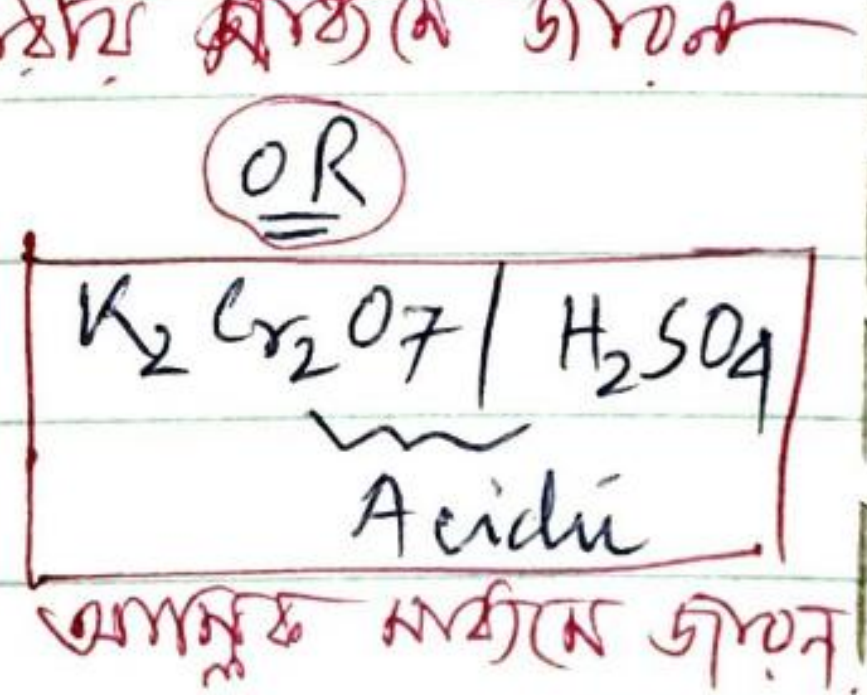 মাধ্যমে জারন
OR
K₂Cr₂O₇ | H₂SO₄
Acidic
আম্লিক মাধ্যমে জারন